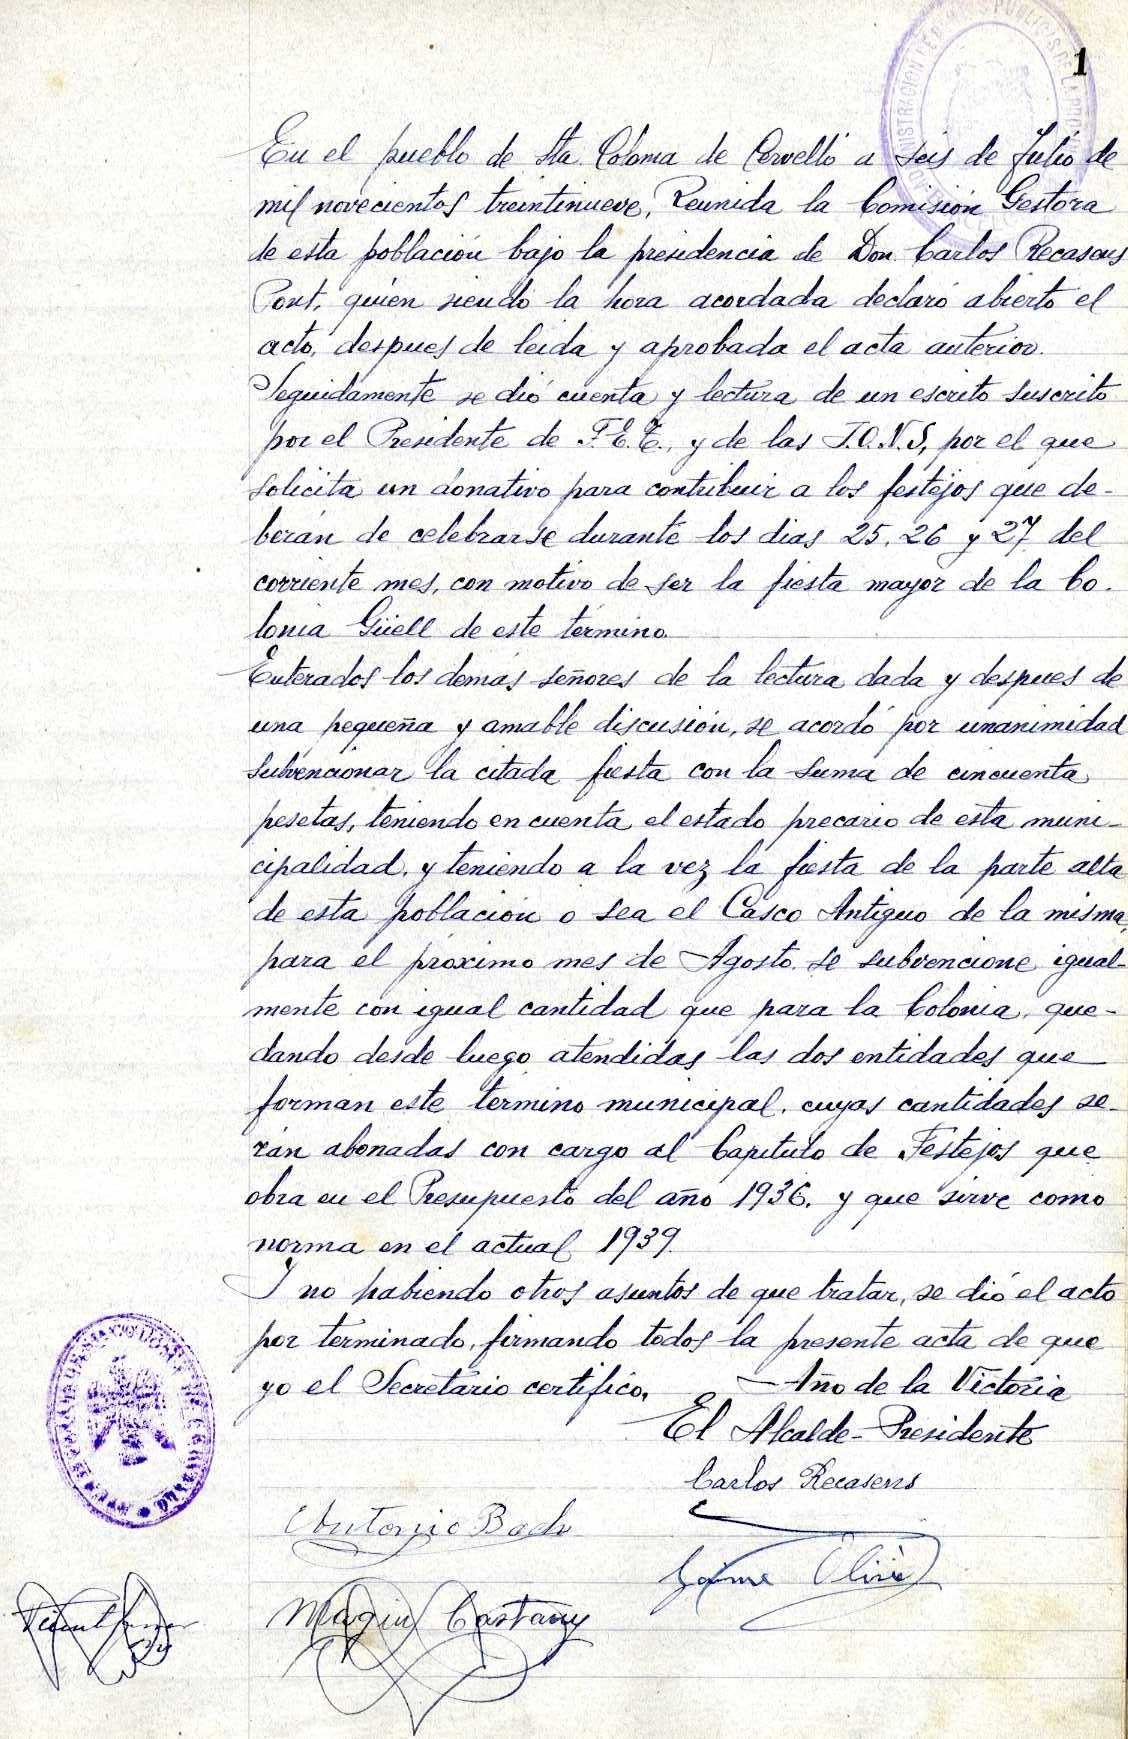 1
En el pueblo de Sta. Coloma de Cervelló a seis de Julio de
mil novecientos treintinueve, Reunida la Comisión Gestora
de esta población bajo la presidencia de Don Carlos Recasens
Pont, quien siendo la hora acordada declaró abierto el
acto, despues de leida y aprobada el acta anterior.
Seguidamente se dió cuenta y lectura de un escrito suscrito
por el Presidente de F.E.T., y de las J.O.N.S, por el que
solicita un donativo para contribuir a los festejos que de-
berán de celebrarse durante los dias 25, 26 y 27 del
corriente mes, con motivo de ser la fiesta mayor de la Co-
lonia Güell de este término.
Enterados los demás señores de la lectura dada y despues de
una pequeña y amable discusión, se acordó por unanimidad
subvencionar la citada fiesta con la suma de cincuenta
pesetas, teniendo en cuenta el estado precario de esta muni-
cipalidad, y teniendo a la vez la fiesta de la parte alta
de esta población o sea el Casco Antiguo de la misma,
para el próximo mes de Agosto, se subvencione igual-
mente con igual cantidad que para la Colonia, que-
dando desde luego atendidas las dos entidades que
forman este término municipal, cuyas cantidades se-
rán abonadas con cargo al Capitulo de Festejos que
obra en el Presupuesto del año 1936, y que sirve como
norma en el actual 1939.
Y no habiendo otros asuntos de que tratar, se dió el acto
por terminado, firmando todos la presente acta de que
yo el Secretario certifico. — Año de la Victoria
El Alcalde-Presidente
Carlos Recasens
Antonio Bach
Jaime
Magin Castany